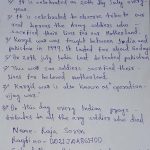 It is celebrated on 26th July every year
It is celebrated to observe tribute our
and honour the army soldiers who
sacrificed their lives for our Motherland.
Kargil was fought between India and
pakistan in 1999. It lasted for about 60days
On 26th July India had defeated pakistan
our soldiers sacrifice their
lives for beloved motherland.
Kargil was is also known as operation-
vijay war.
On this day every Indian pays
tributes to all the army soldier who died
Name:- Raja Soren